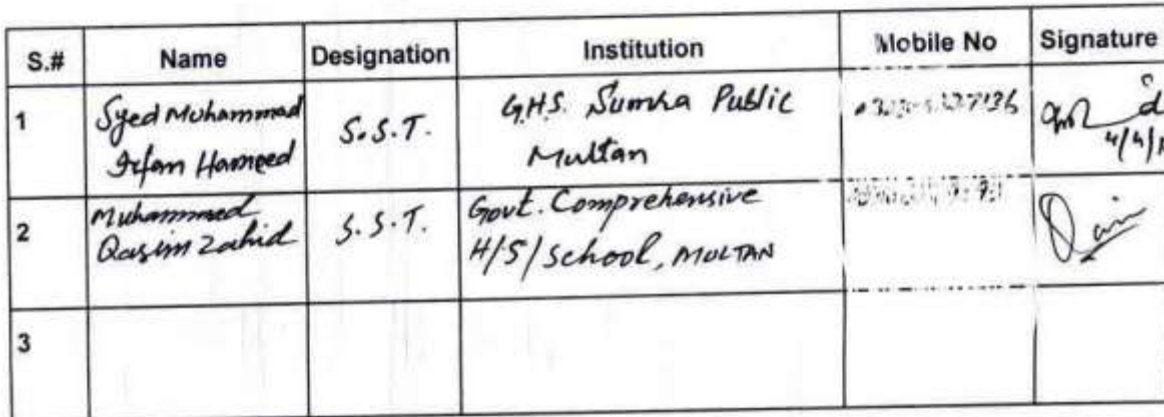 S.# Name Designation Institution Mobile No Signature
1 Syed Muhammad Irfan Hameed S.S.T. G.H.S. Sumra Public Multan
2 Muhammad Qasim Zahid S.S.T. Govt. Comprehensive H/S/School, MULTAN
3